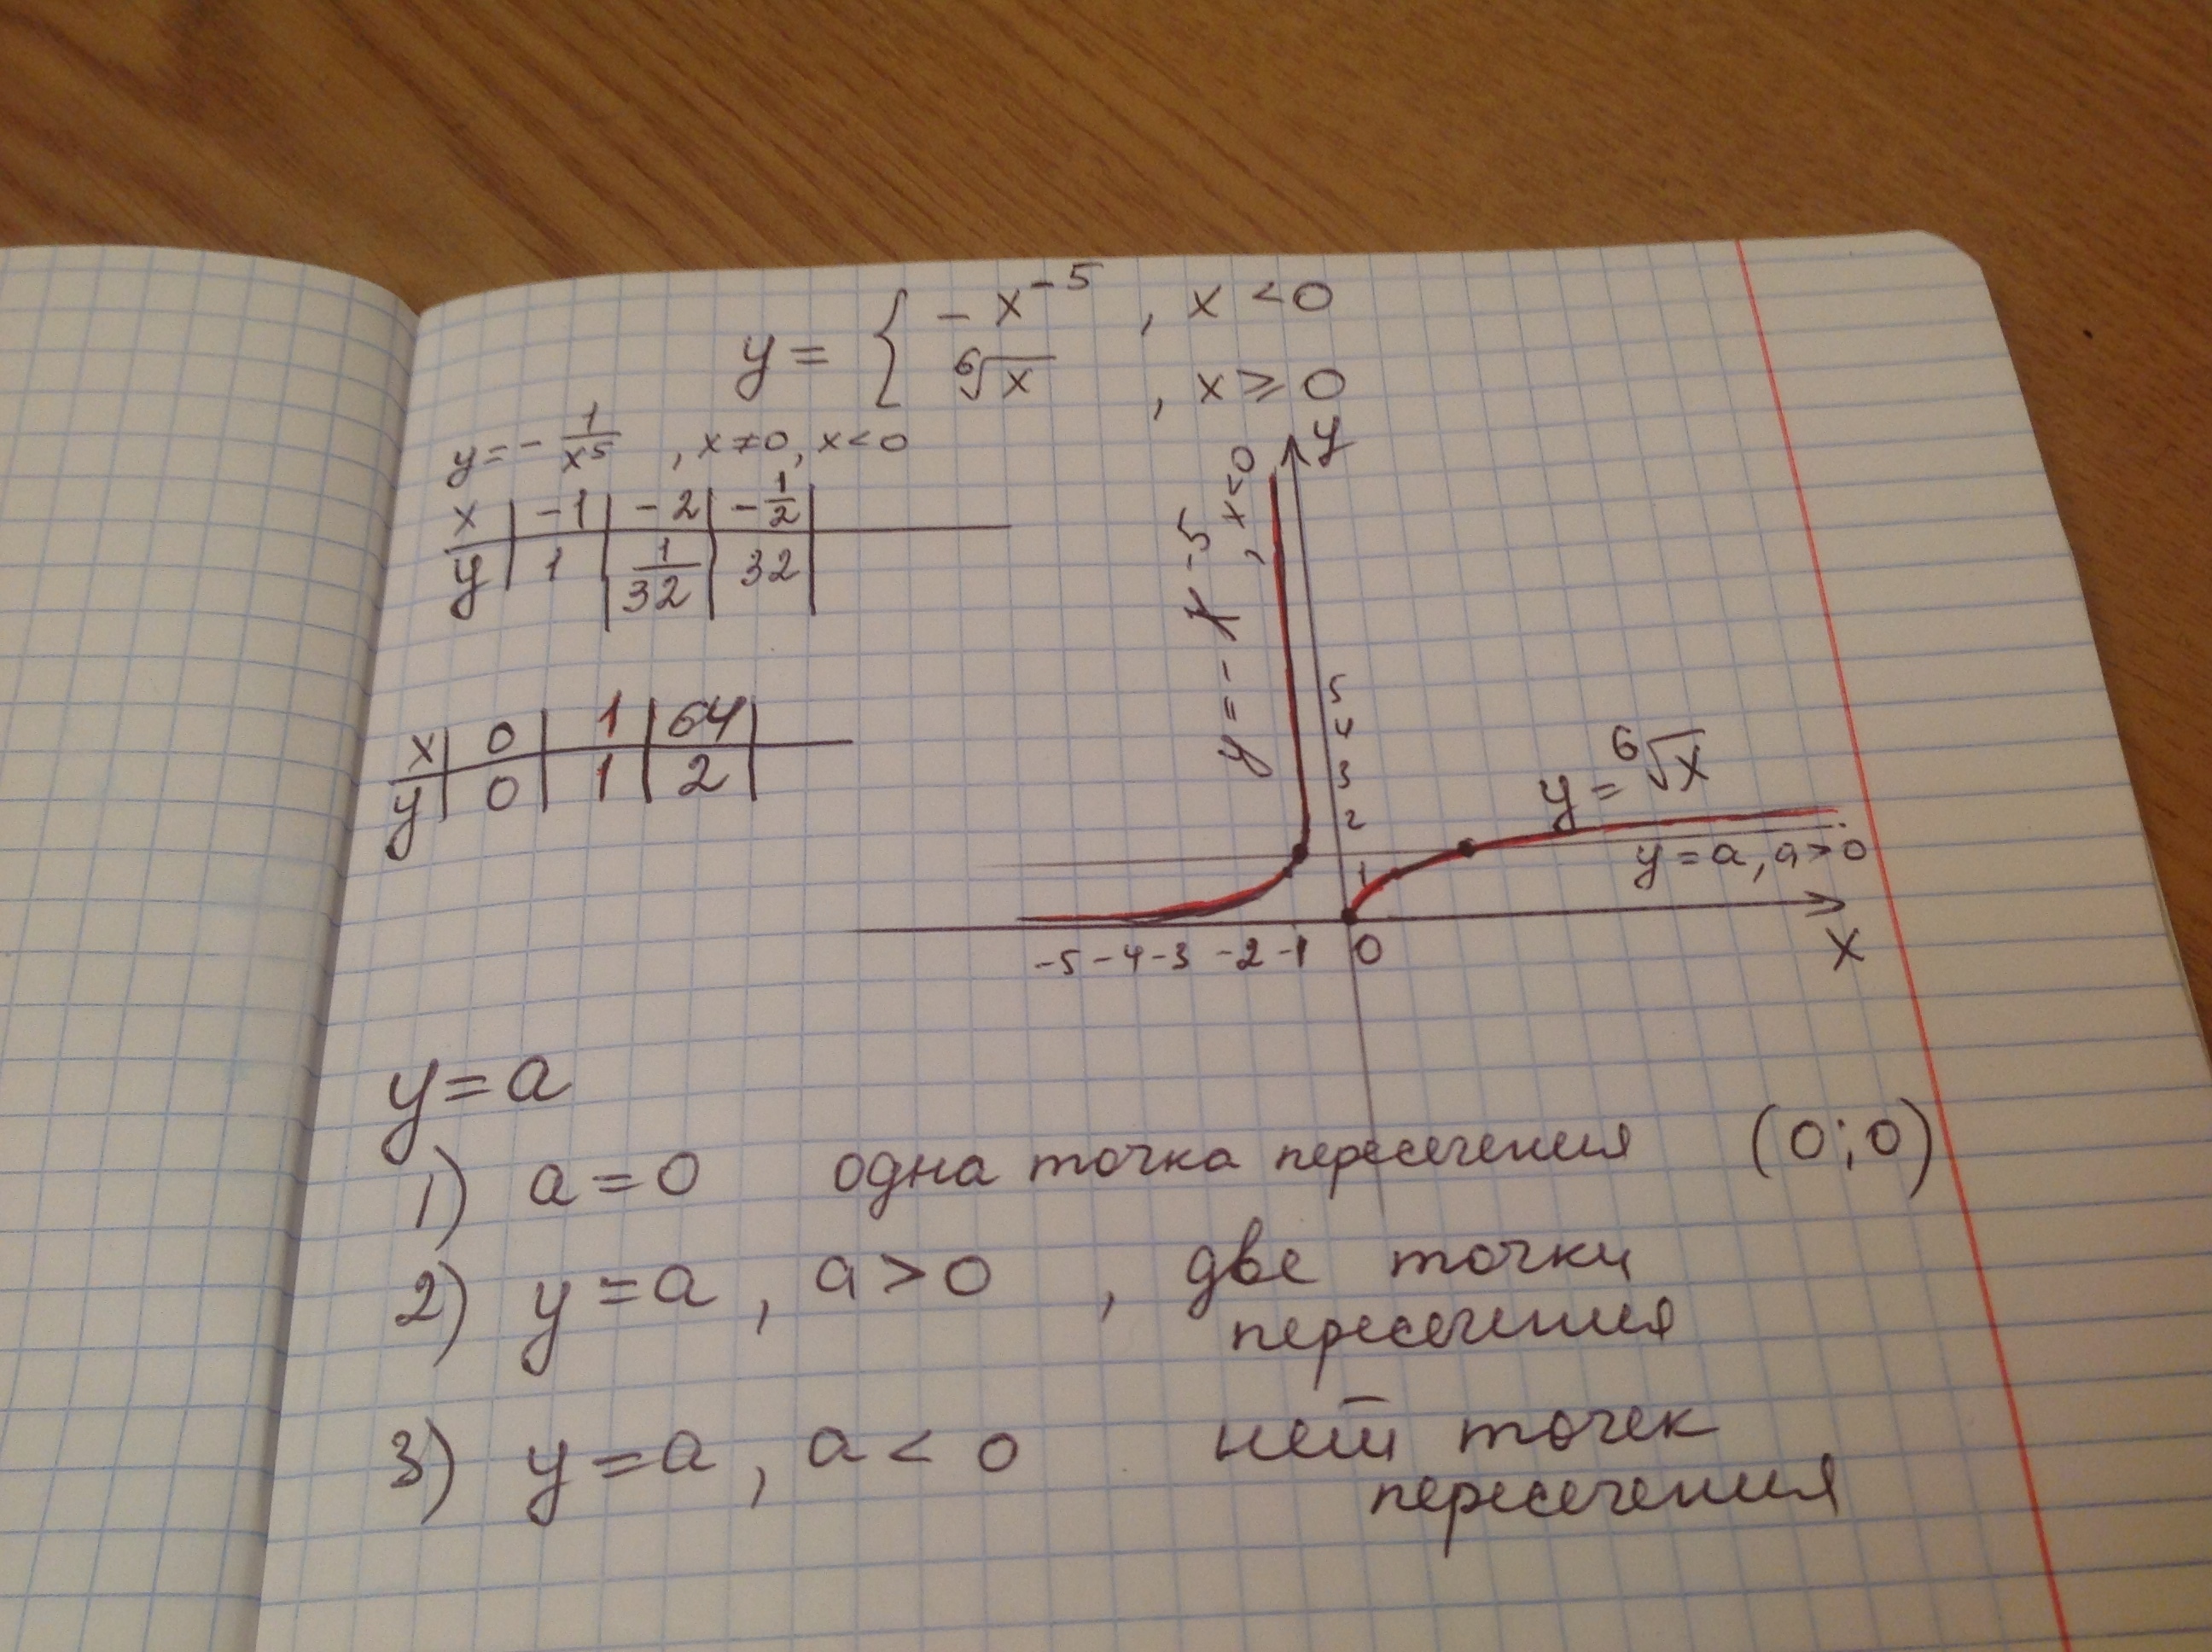 y = { - x⁻⁵ , x < 0
⁶√x , x ≥ 0
y = - 1/x⁵ , x ≠ 0, x < 0
x | -1 | -2 | -1/2 |
y | 1 | 1/32 | 32 |
x | 0 | 1 | 64 |
y | 0 | 1 | 2 |
y
y = - x⁻⁵, x < 0
5
4
3
2
1
y = ⁶√x
y = a, a > 0
-5 -4 -3 -2 -1 0
x
y = a
1) a = 0 одна точка пересечения (0;0)
2) y = a , a > 0 , две точки
пересечения
3) y = a , a < 0 нет точек
пересечения